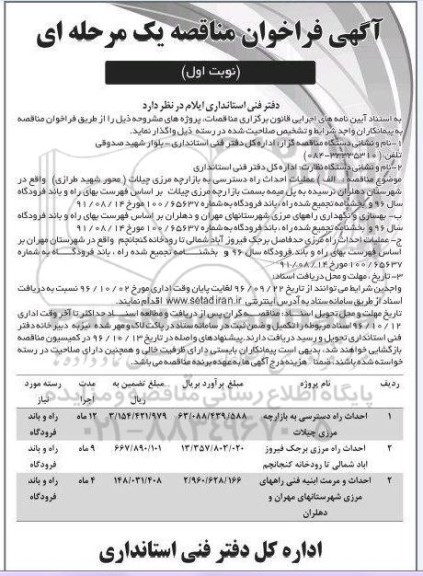 آگهی فراخوان مناقصه یک مرحله ای
(نوبت اول)
دفتر فنی استانداری ایلام در نظر دارد
به استناد آیین نامه های اجرایی قانون برگزاری مناقصات، پروژه های مشروحه ذیل را از طریق فراخوان مناقصه
به پیمانکاران واجد شرایط و تشخیص صلاحیت شده در رسته ذیل واگذار نماید.
۱- نام و نشانی دستگاه مناقصه گزار: اداره کل دفتر فنی استانداری - بلوار شهید صدوقی
تلفن: (۳۳۳۳۵۳۱۰-۰۸۴)
۲- نام و نشانی دستگاه نظارت: اداره کل دفتر فنی استانداری
موضوع مناقصه: الف) عملیات احداث راه دسترسی به بازارچه مرزی چیلات (محور شهید طرازی) واقع در
شهرستان دهلران نرسیده به پل میمه بسمت بازارچه مرزی چیلات بر اساس فهرست بهای راه و باند فرودگاه
سال ۹۶ و بخشنامه تجمیع شده راه، باند فرودگاه به شماره ۱۰۰/۶۵۶۳۷ مورخ ۹۱/۰۸/۱۴
ب- بهسازی و نگهداری راههای مرزی شهرستانهای مهران و دهلران بر اساس فهرست بهای راه و باند فرودگاه
سال ۹۶ و بخشنامه تجمیع شده راه، باند فرودگاه به شماره ۱۰۰/۶۵۶۳۷ مورخ ۹۱/۰۸/۱۴
ج- عملیات احداث راه مرزی حدفاصل برجک فیروز آباد شمالی تا رودخانه کنجانچم واقع در شهرستان مهران بر
اساس فهرست بهای راه و باند فرودگاه سال ۹۶ و بخشنامه تجمیع شده راه، باند فرودگاه به شماره
۱۰۰/۶۵۶۳۷ مورخ ۹۱/۰۸/۱۴
۳- تاریخ، مهلت و محل دریافت اسناد:
واجدین شرایط می توانند از تاریخ ۹۶/۰۹/۲۲ لغایت پایان وقت اداری مورخ ۹۶/۱۰/۰۲ نسبت به دریافت
اسناد از طریق سامانه ستاد به آدرس اینترنتی www.setadiran.ir اقدام نمایند.
تاریخ مهلت و محل تحویل اسناد: مناقصه گران پس از دریافت و مطالعه اسناد حداکثر تا آخر وقت اداری
۹۶/۱۰/۱۲ اسناد مربوطه را تکمیل و ضمن ثبت در سامانه ستاد در پاکت لاک و مهر شده نیز به دبیرخانه دفتر
فنی استانداری تحویل و رسید دریافت دارند. پیشنهادهای واصله در تاریخ ۹۶/۱۰/۱۳ در کمیسیون مناقصه
بازگشایی خواهند شد. بدیهی است پیمانکاران بایستی دارای ظرفیت خالی و همچنین دارای صلاحیت در رسته
خواسته شده باشند. ضمنا هزینه درج آگهی ها به عهده برنده مناقصه می باشد.
ردیف نام پروژه مبلغ برآورد به ریال مبلغ تضمین به ریال مدت اجرا رسته مورد نیاز
۱ احداث راه دسترسی به بازارچه مرزی چیلات ۶۳/۰۸۸/۴۳۹/۵۸۸ ۳/۱۵۴/۴۲۱/۹۷۹ ۱۲ ماه راه و باند فرودگاه
۲ احداث راه مرزی برجک فیروز اباد شمالی تا رودخانه کنجانچم ۱۳/۳۵۷/۸۰۳/۰۲۰ ۶۶۷/۸۹۰/۱۰۱ ۹ ماه راه و باند فرودگاه
۲ احداث و مرمت ابنیه فنی راههای مرزی شهرستانهای مهران و دهلران ۲/۹۶۰/۶۲۸/۱۶۶ ۱۴۸/۰۳۱/۴۰۸ ۴ ماه راه و باند فرودگاه
اداره کل دفتر فنی استانداری